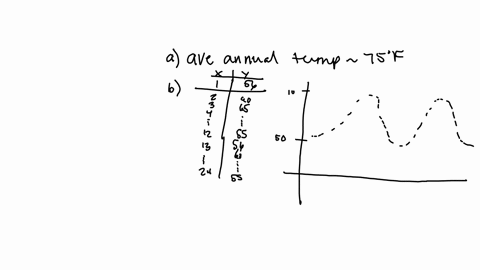 a) ave annual temp ~ 75°F
b)
X Y
1 56
2 60
3 65
4 i
i i
12 55
13 56
i 60
i i
24 55
10
50